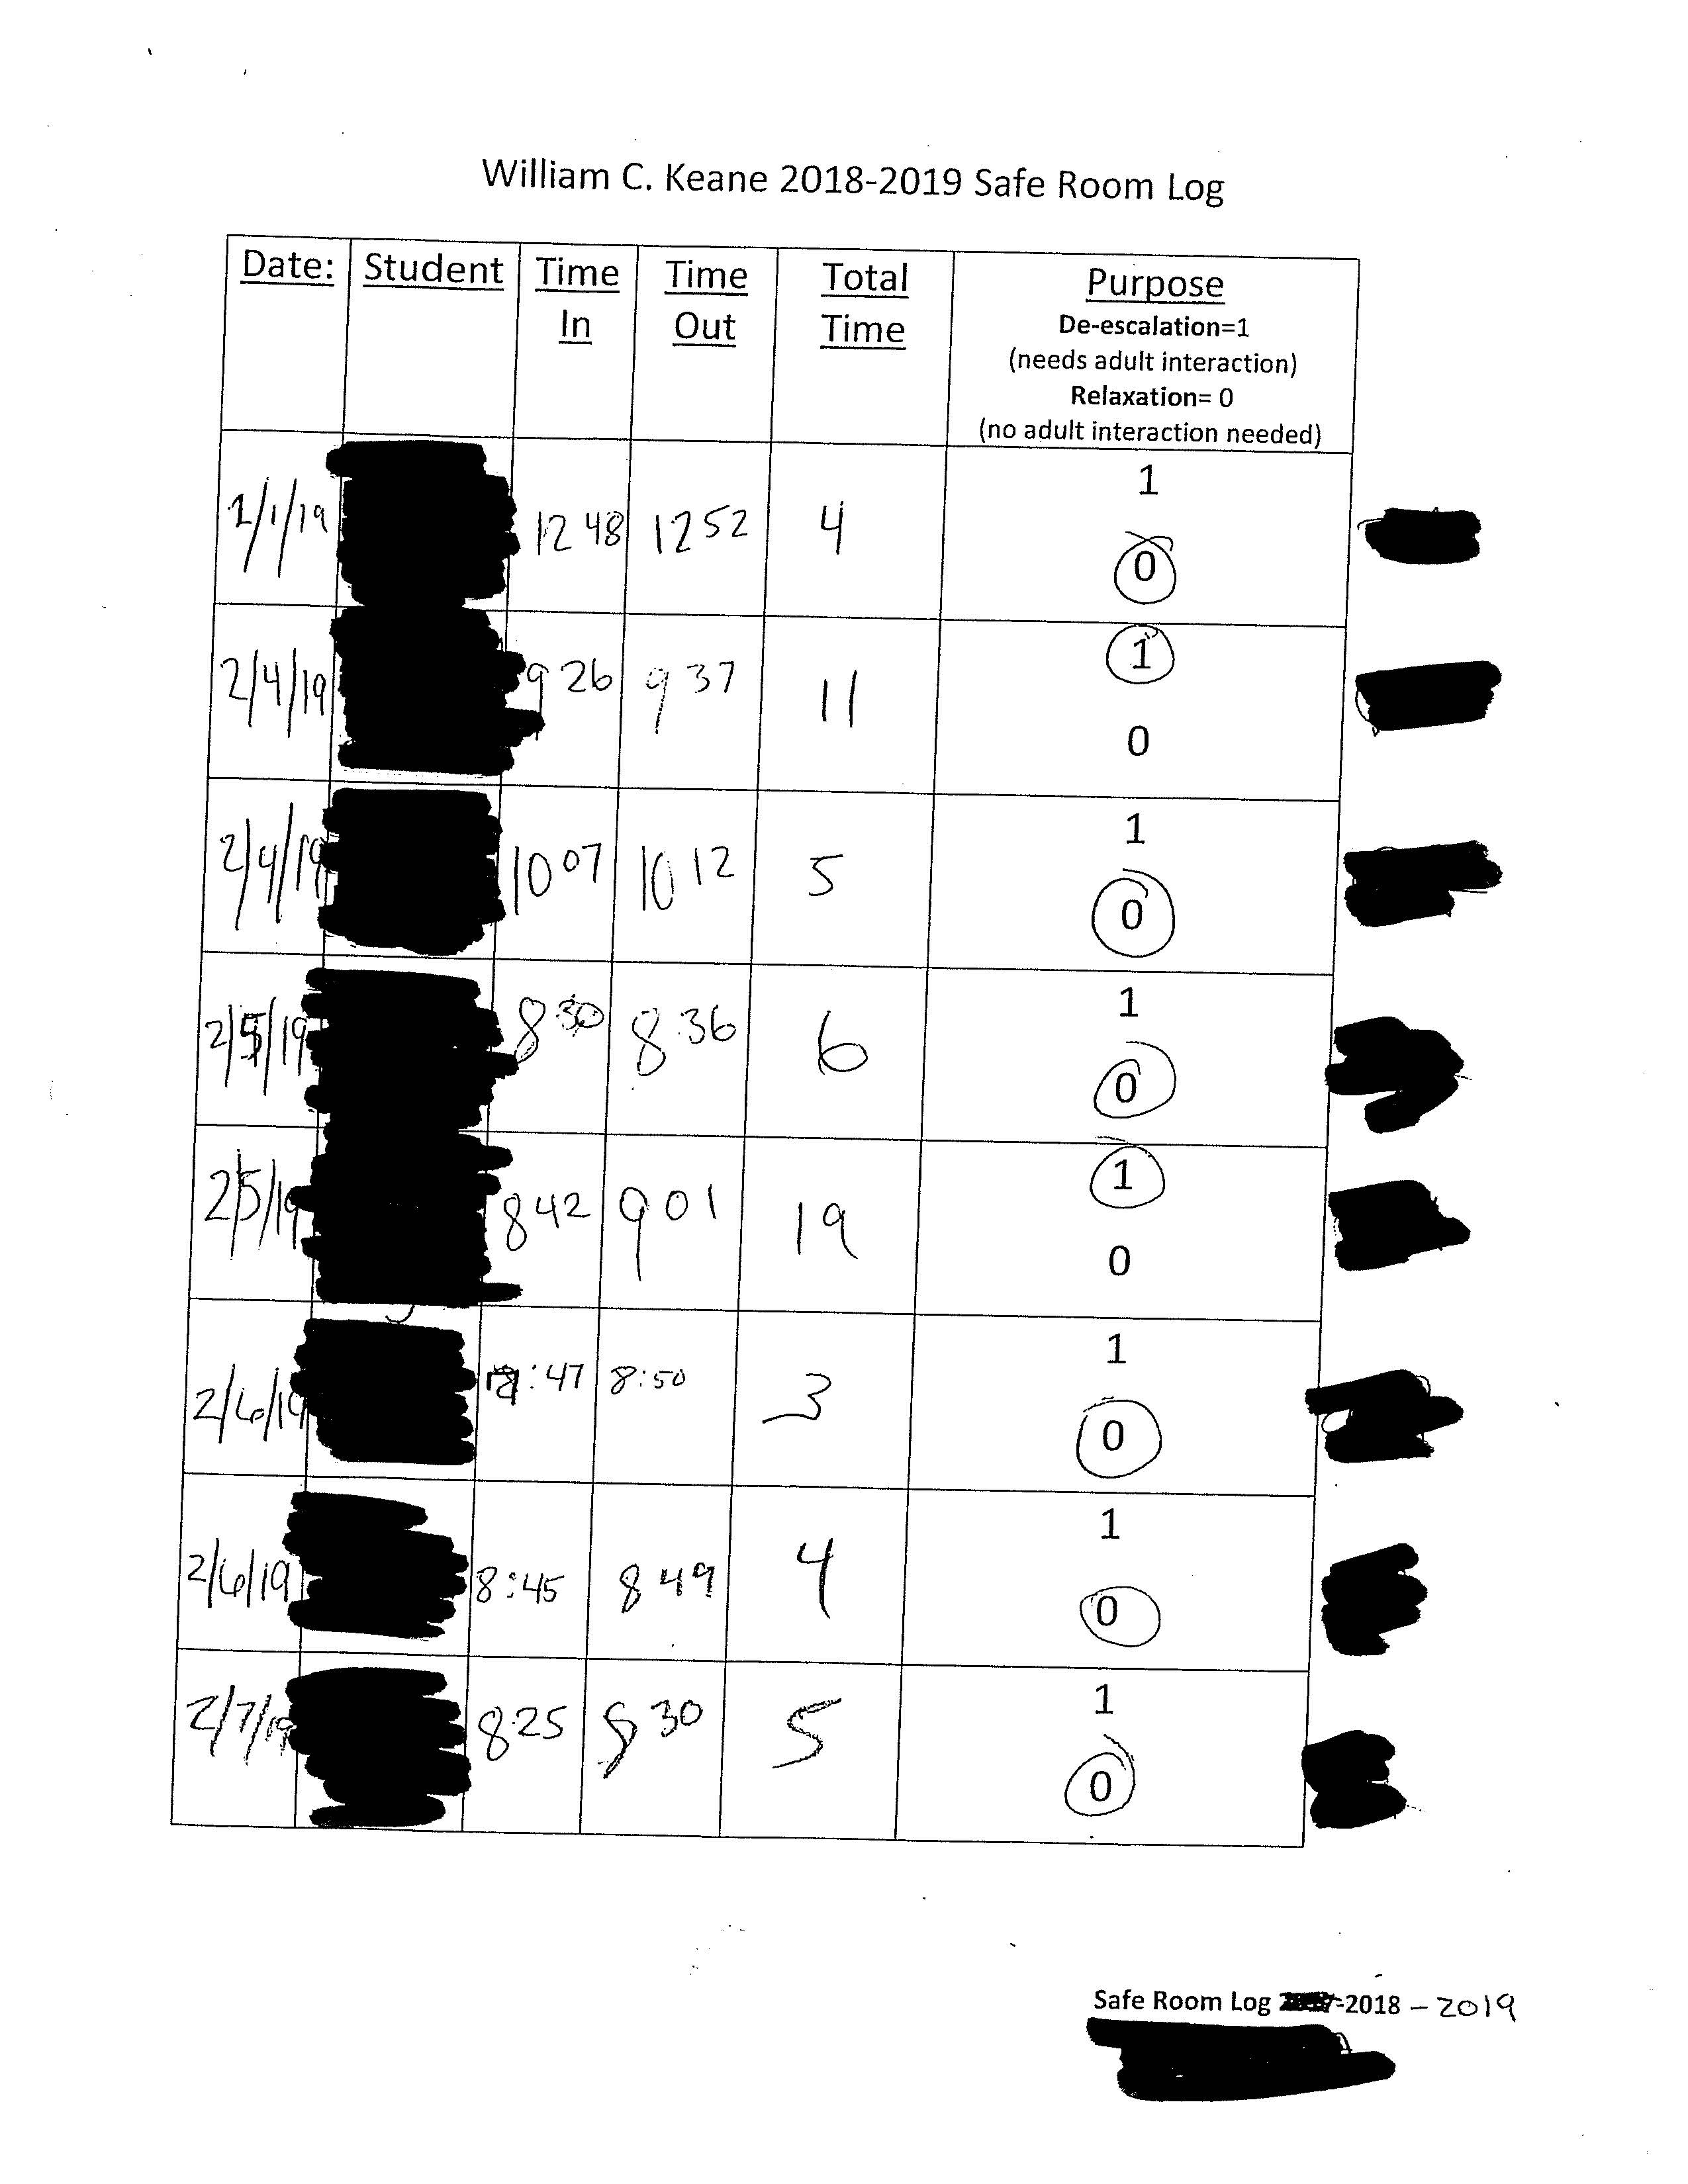 William C. Keane 2018-2019 Safe Room Log
Date: Student Time In Time Out Total Time Purpose
De-escalation=1
(needs adult interaction)
Relaxation= 0
(no adult interaction needed)
1
2/1/19 12 48 12 52 4
0
1
2/4/19 9 26 9 37 11
0
1
2/4/19 10 07 10 12 5
0
1
2/5/19 8 30 8:36 6
0
1
2/5/19 8 42 9 01 19
0
1
2/6/19 :47 8:50 3
0
1
2/6/19 8:45 8 49 4
0
1
2/7/19 8 25 8 30 5
0
Safe Room Log -2018 - 2019